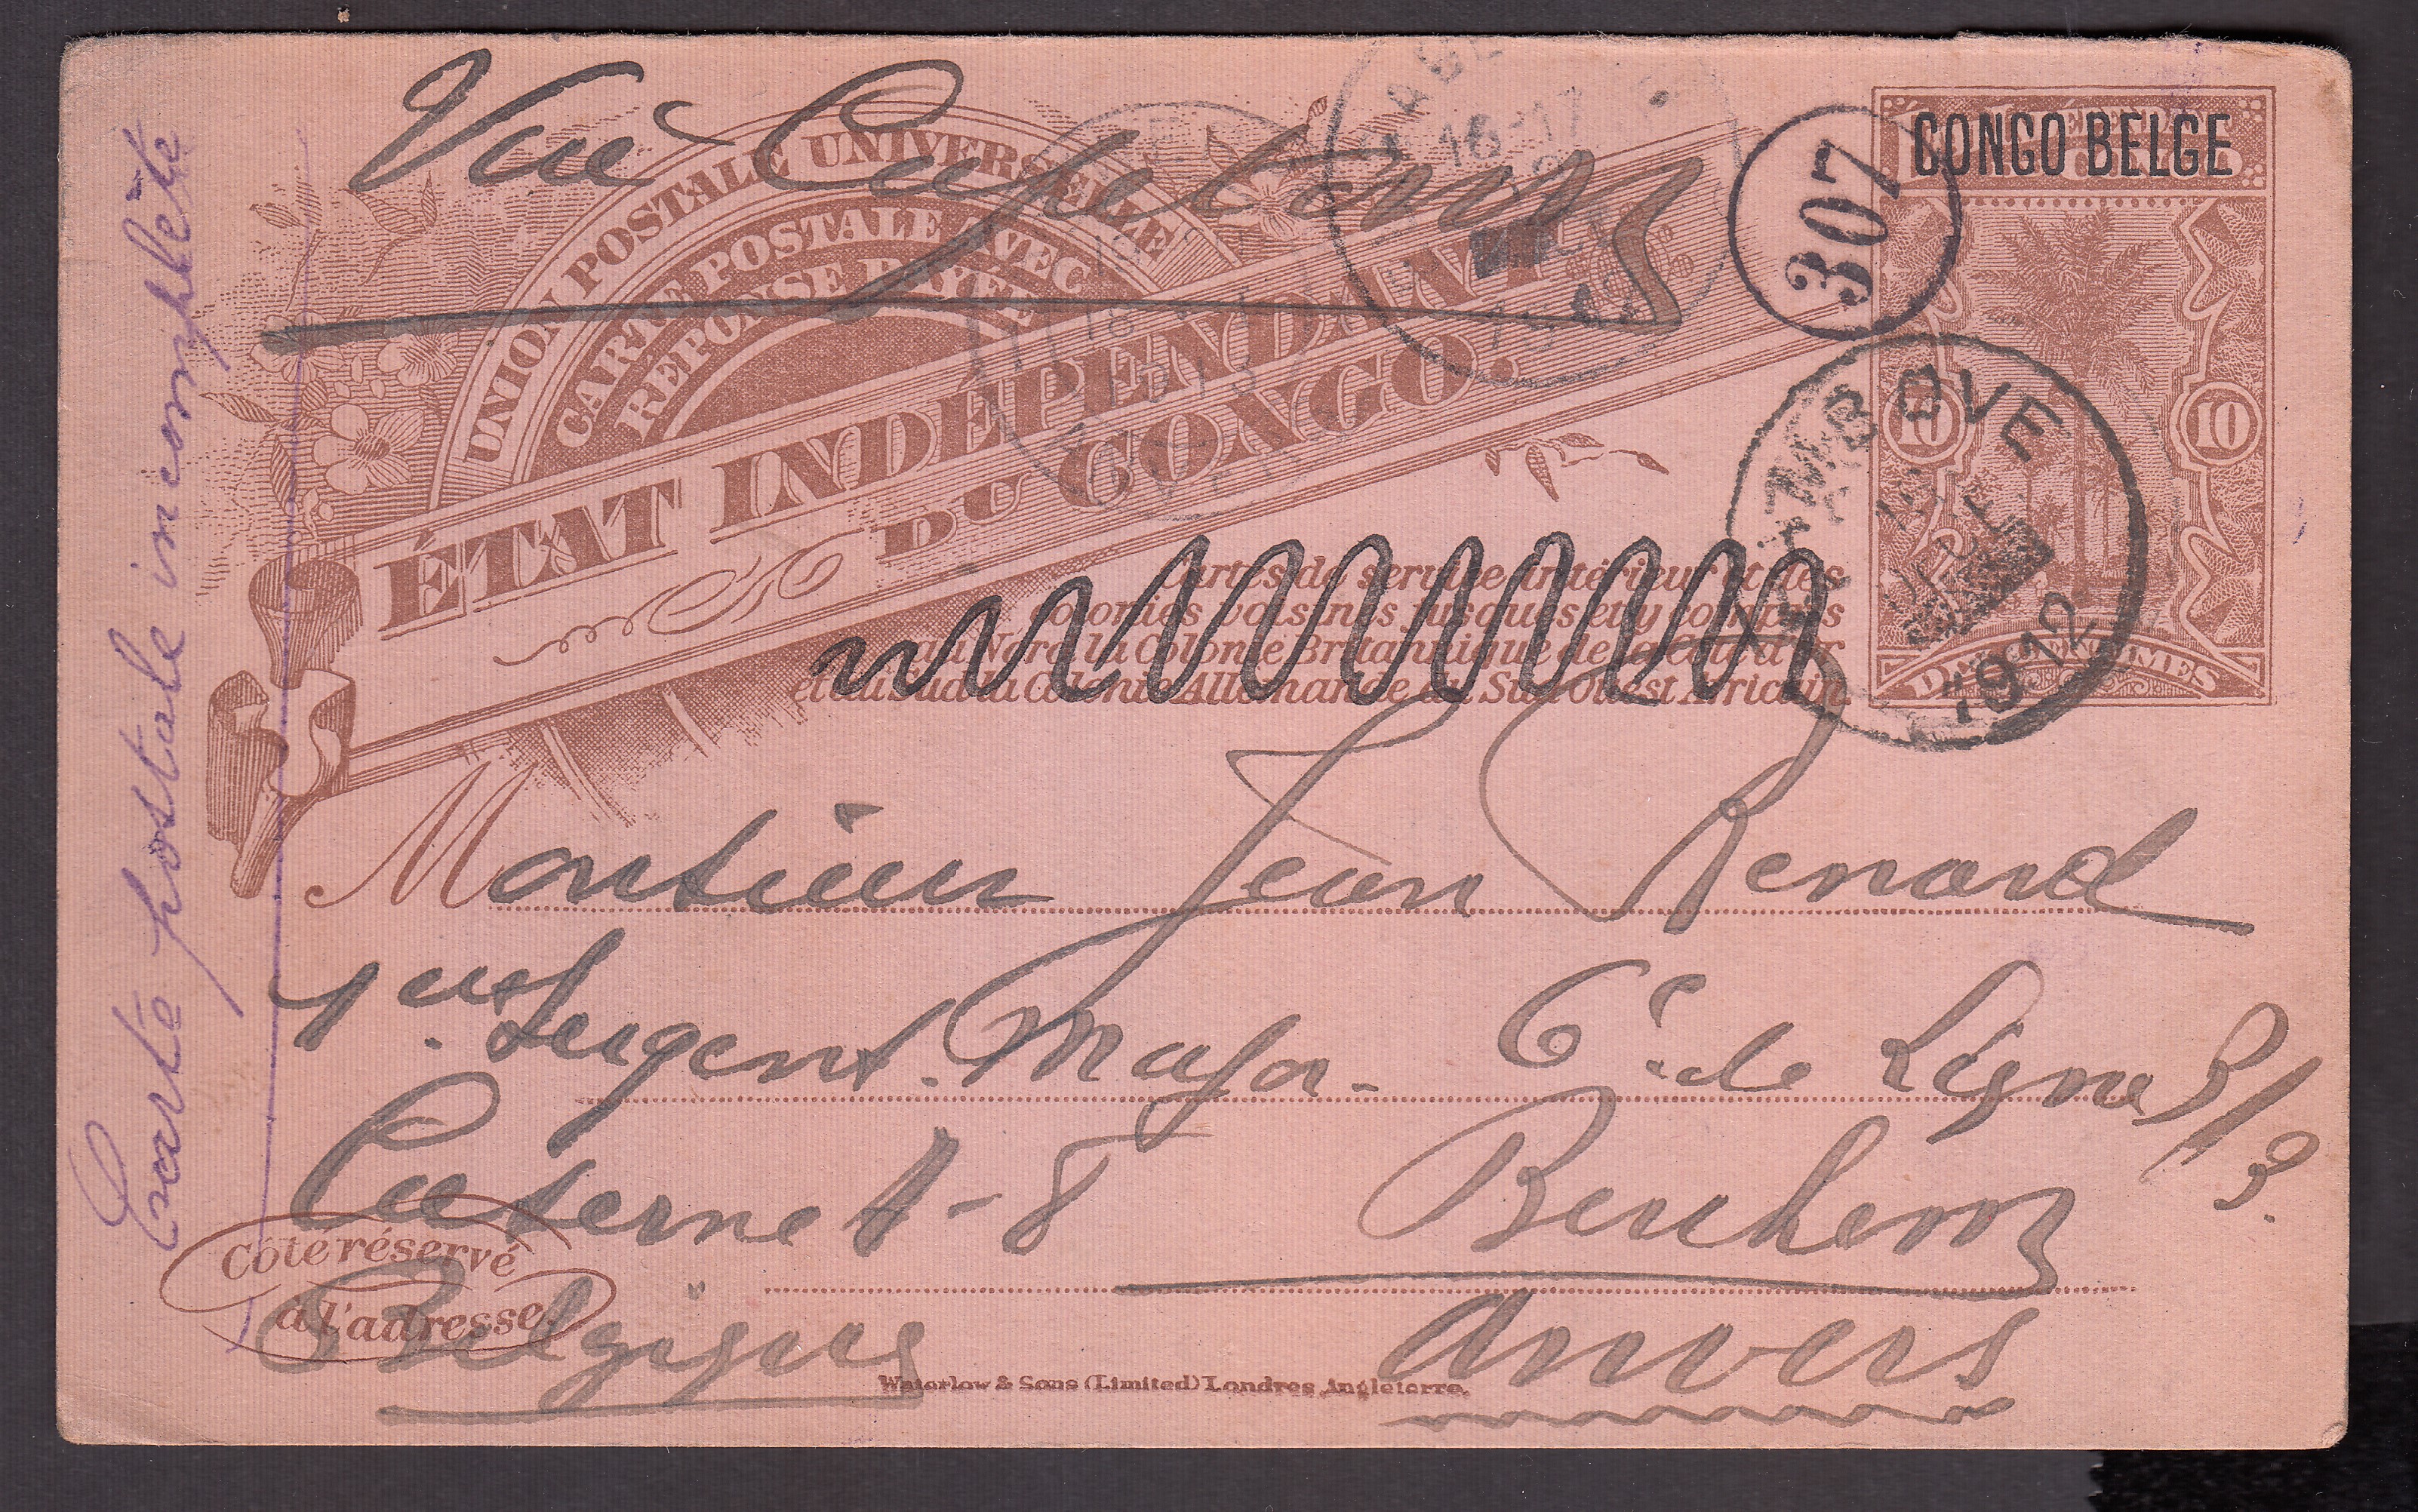 Via Capetown
UNION POSTALE UNIVERSELLE
CARTE POSTALE AVEC
REPONSE PAYÉE
ÉTAT INDÉPENDANT
DU CONGO.
CONGO BELGE
307
10 10
KAMBOVE
1912
16-17
1913
Cartes de service intérieur et des
colonies voisines jusques et y compris
au Nord la Colonie Britannique de la Côte d'Or
et au Sud la Colonie Allemande du Sud Ouest Africain.
Monsieur Jean Renard
1er Sergent. Major. 6e de Ligne 3/3.
Caserne 7-8 Berchem
Belgique Anvers
Côté réservé
à l'adresse.
Waterlow & Sons (Limited) Londres, Angleterre.
Carte postale incomplète